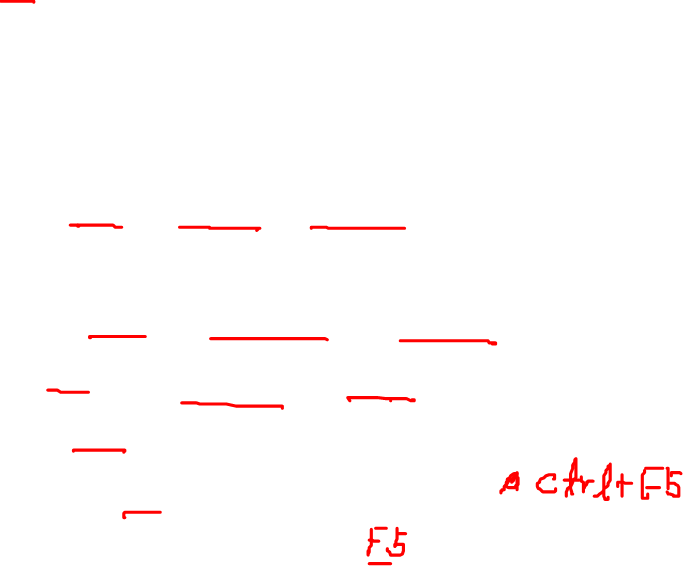 ctrl+F5
F5